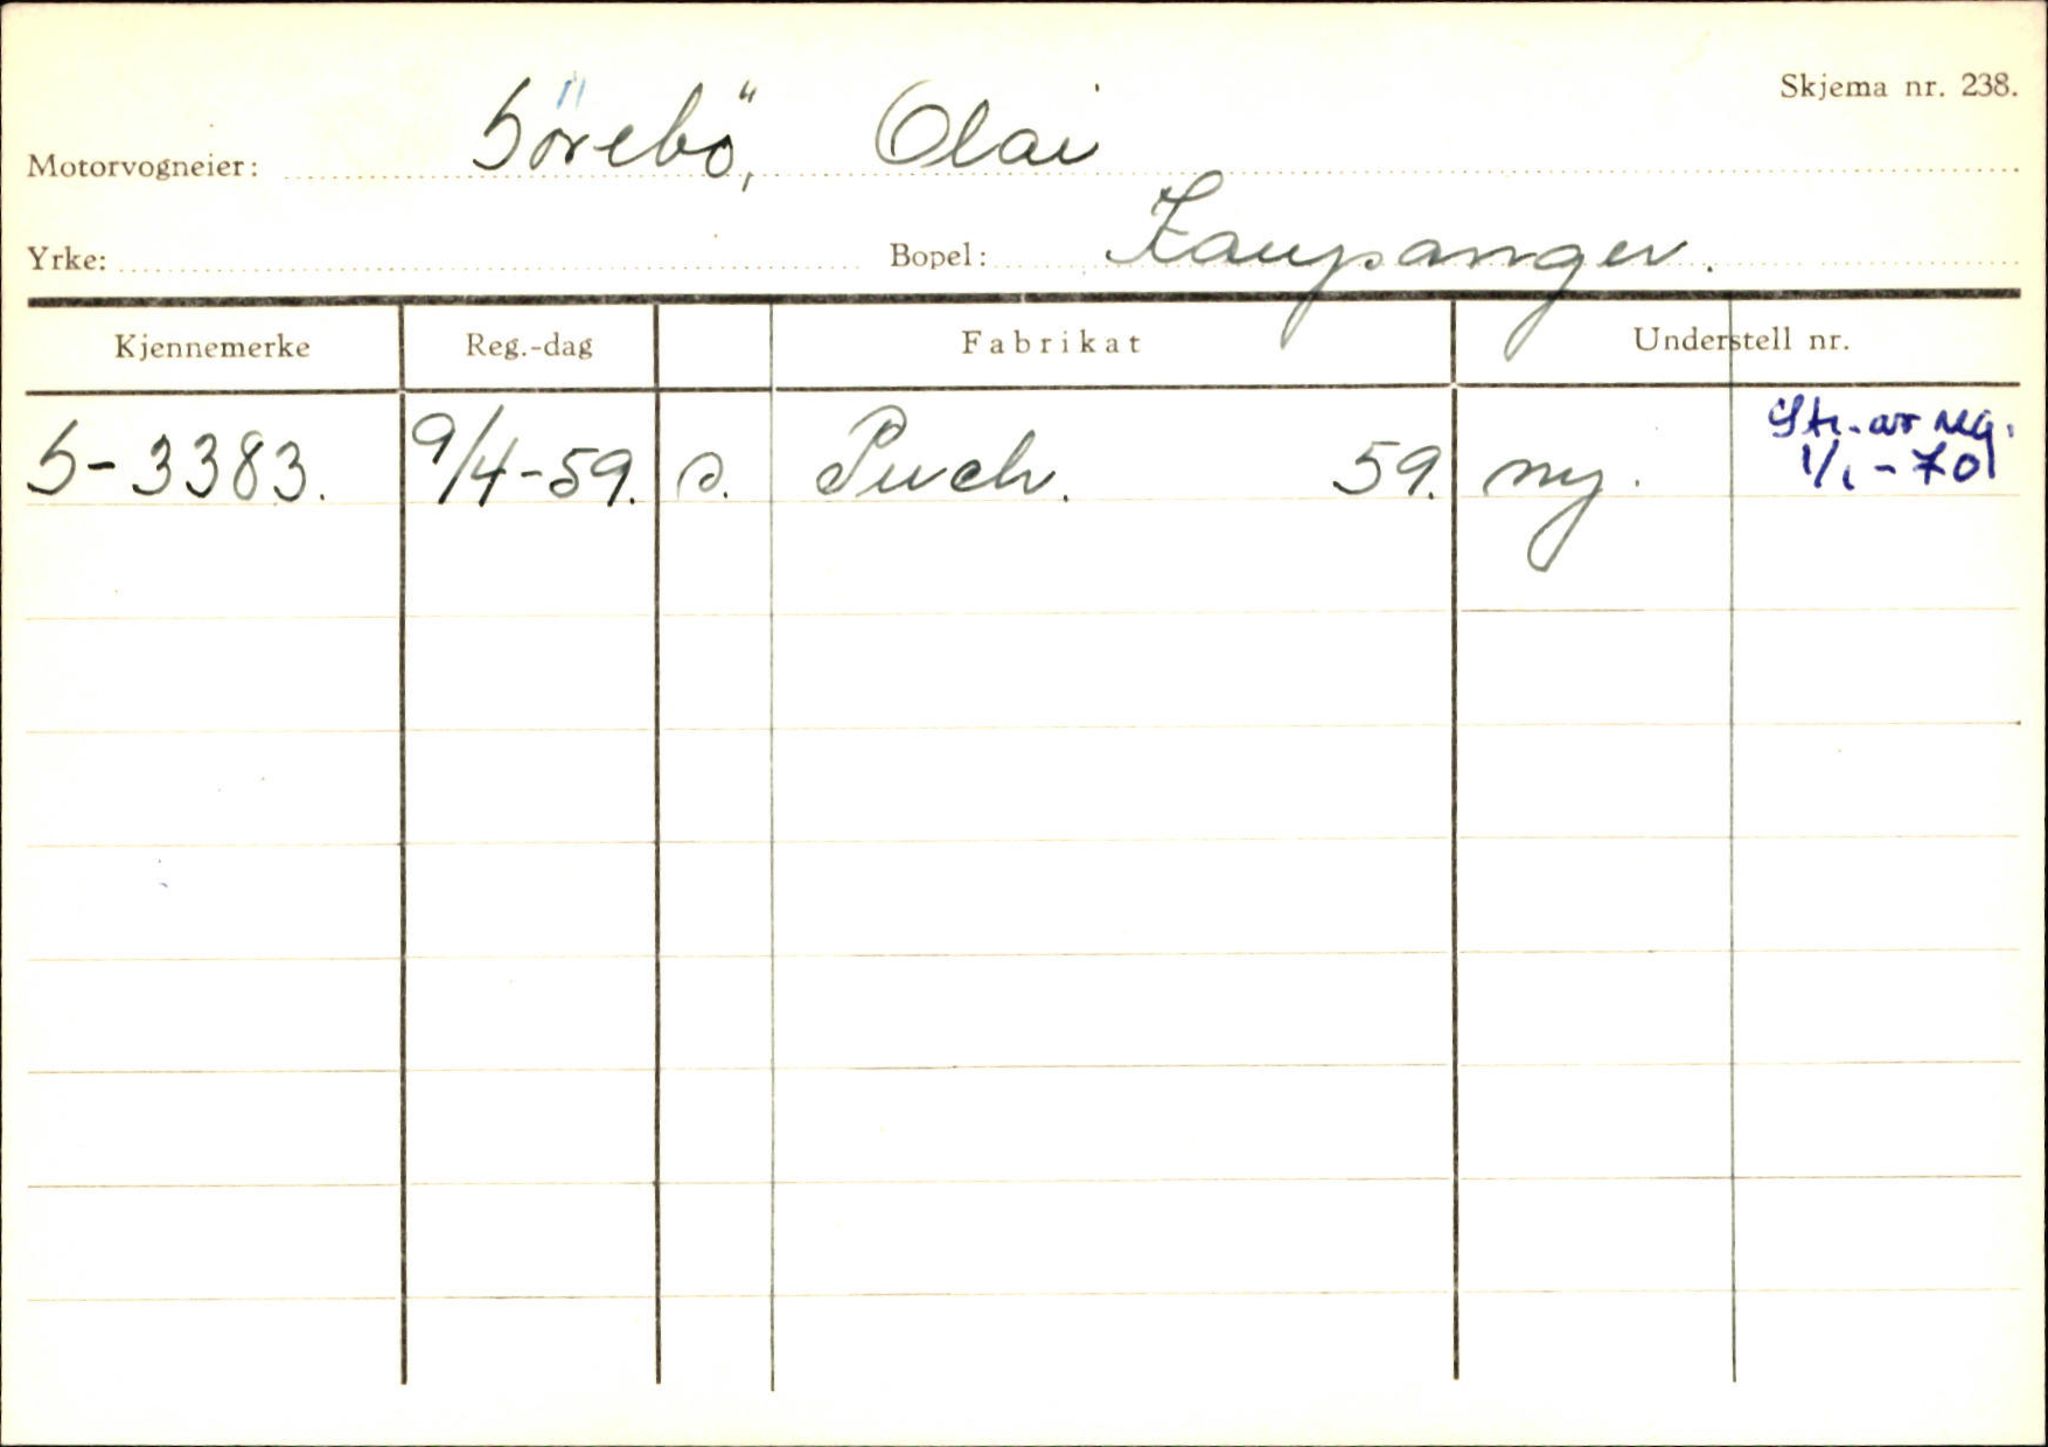 Skjema nr. 238.
Motorvogneier: Sörebö, Olai
Yrke: Bopel: Kaupanger.
Kjennemerke Reg.-dag Fabrikat Understell nr.
S-3383. 9/4-59. s. Puch. 59. ny. Str. av reg.
1/1-70